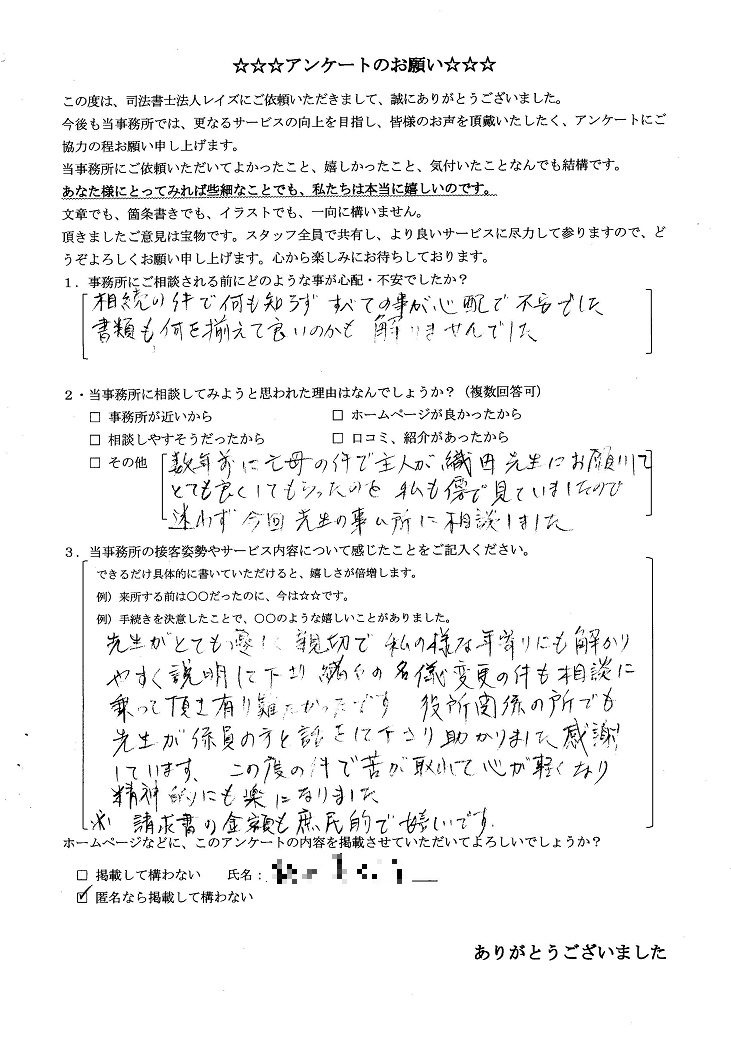 ☆☆☆アンケートのお願い☆☆☆
この度は、司法書士法人レイズにご依頼いただきまして、誠にありがとうございました。
今後も当事務所では、更なるサービスの向上を目指し、皆様のお声を頂戴いたしたく、アンケートにご
協力の程お願い申し上げます。
当事務所にご依頼いただいてよかったこと、嬉しかったこと、気付いたことなんでも結構です。
あなた様にとってみれば些細なことでも、私たちは本当に嬉しいのです。
文章でも、箇条書きでも、イラストでも、一向に構いません。
頂きましたご意見は宝物です。スタッフ全員で共有し、より良いサービスに尽力して参りますので、ど
うぞよろしくお願い申し上げます。心から楽しみにお待ちしております。
1．事務所にご相談される前にどのような事が心配・不安でしたか？
相続の件で何も知らず すべての事が心配で不安でした
書類も何を揃えて良いのかも 解りませんでした
2・当事務所に相談してみようと思われた理由はなんでしょうか？（複数回答可）
□ 事務所が近いから □ ホームページが良かったから
□ 相談しやすそうだったから □ 口コミ、紹介があったから
□ その他 数年前に亡母の件で主人が 織田先生にお願いして
とても良くしてもらったのを 私も傍で見ていましたので
迷わず 今回 先生の事ム所に相談しました
3．当事務所の接客姿勢やサービス内容について感じたことをご記入ください。
できるだけ具体的に書いていただけると、嬉しさが倍増します。
例）来所する前は○○だったのに、今は☆☆です。
例）手続きを決意したことで、○○のような嬉しいことがありました。
先生がとても優しく 親切で 私の様な年寄りにも解かり
やすく説明して下さり の名儀変更の件も相談に
乗って頂き有り難たかったです 役所関係の所でも
先生が係員の方と話をして下さり助かりました 感謝
しています、この度の件で苦が取れて心が軽くなり
精神的にも楽になりました
※ 請求書の金額も庶民的で嬉しいです.
ホームページなどに、このアンケートの内容を掲載させていただいてよろしいでしょうか？
□ 掲載して構わない 氏名：
☑ 匿名なら掲載して構わない
ありがとうございました